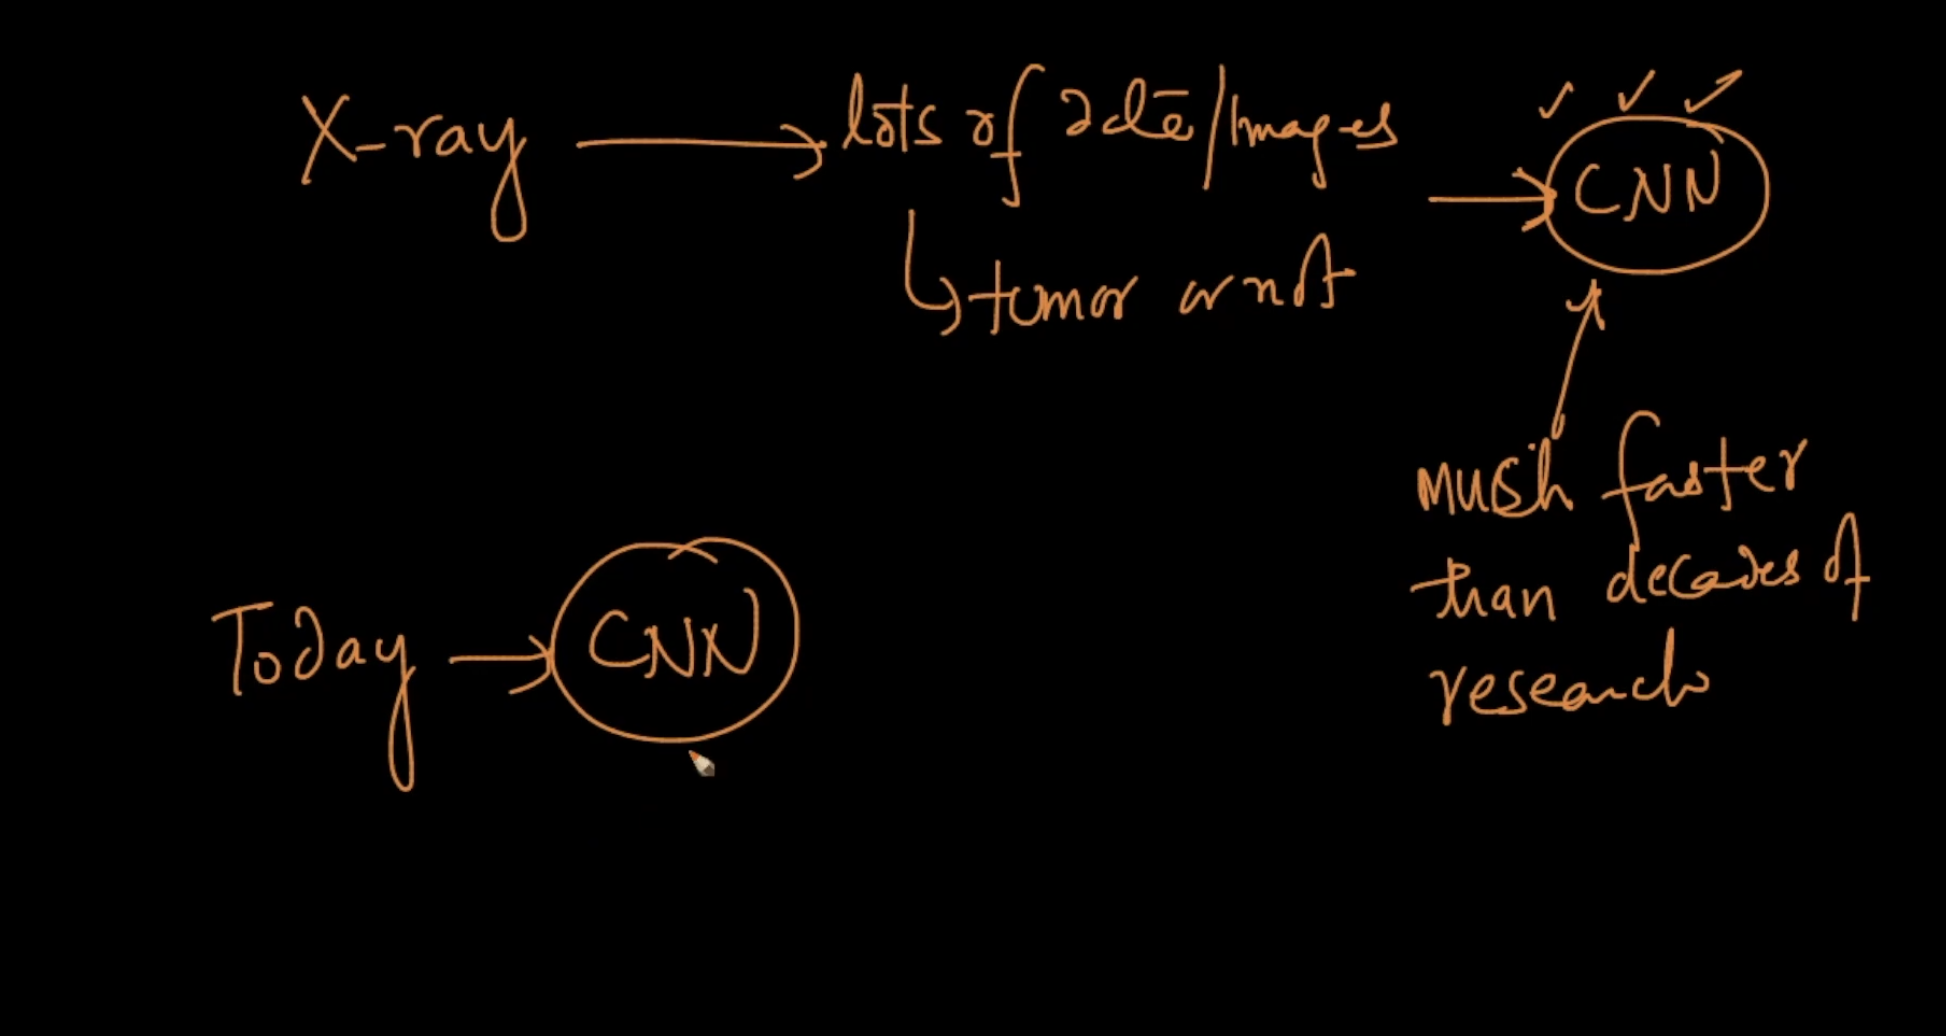 X-ray → lots of data/Images → CNN
↳ tumor or not
much faster
than decades of
research
Today → CNN